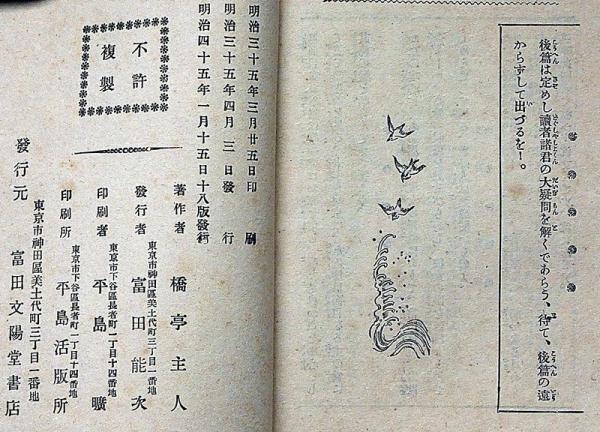 後篇は定めし讀者諸君の大疑問を解くであらう、待て、後篇の遠
からずして出づるを！。
明治三十五年三月廿五日印刷
明治三十五年四月三日發行
明治四十五年一月十五日十八版發行
不許
複製
著作者 橋亭主人
東京市神田區美土代町三丁目一番地
發行者 富田能次
東京市下谷區長者町一丁目十四番地
印刷者 平島曠
東京市下谷區長者町一丁目十四番地
印刷所 平島活版所
東京市神田區美土代町三丁目一番地
發行元 富田文陽堂書店